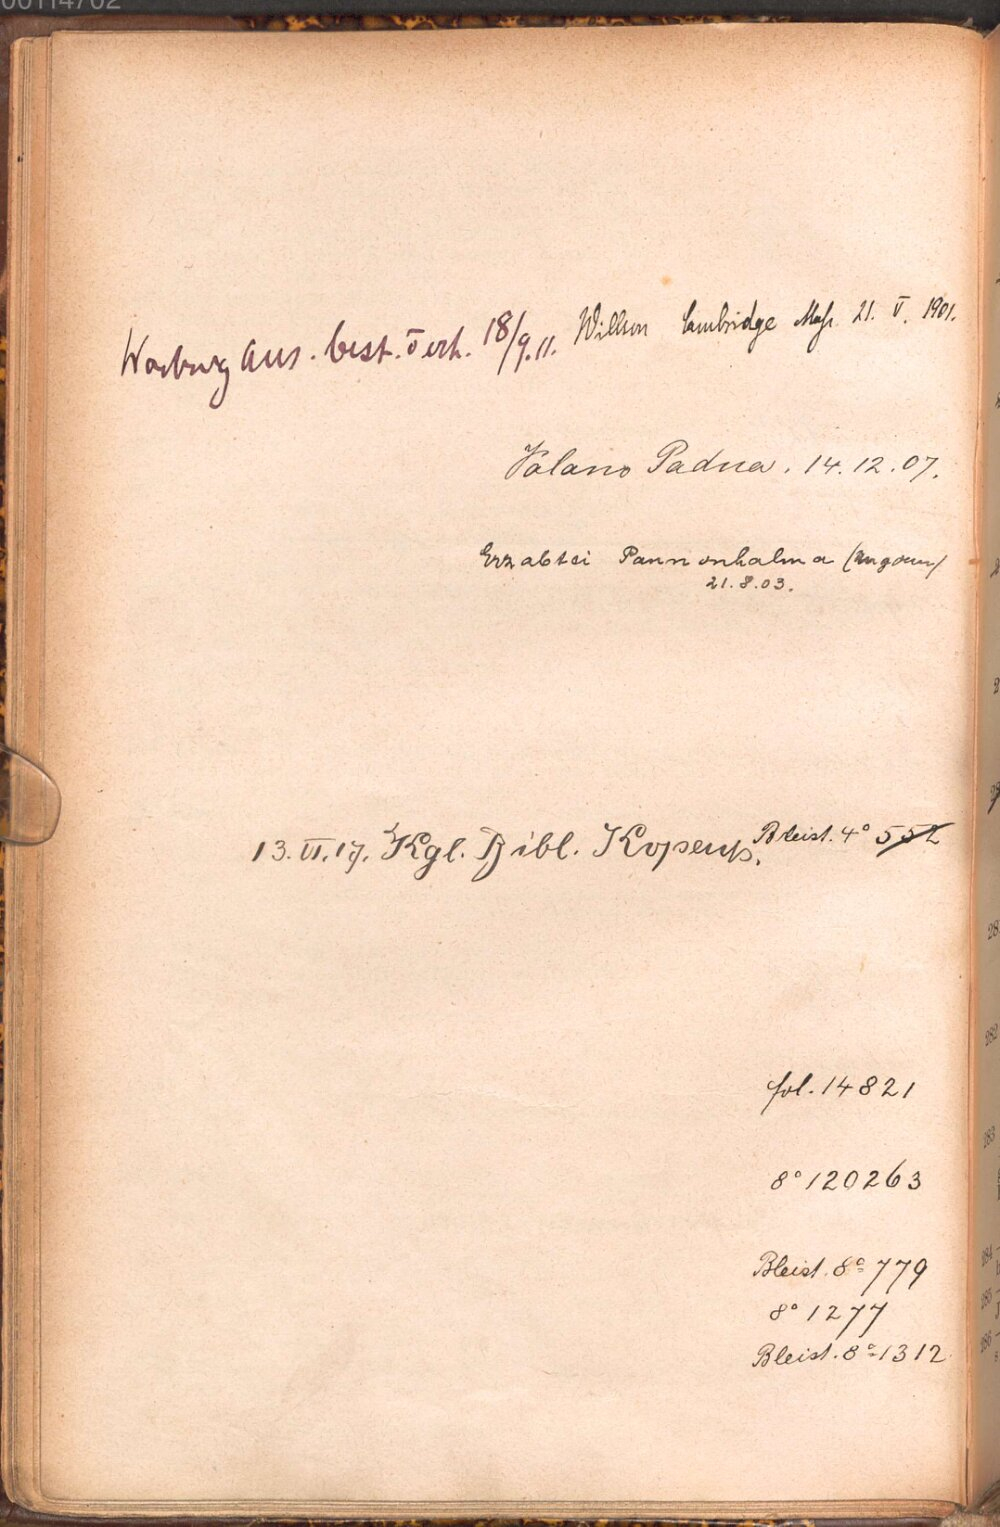 00114702
Warburg Aus. best. 18/9.11. Willson Cambridge Mass. 21. V. 1901.
Valano Padua. 14.12.07.
Erzabtei Pannonhalma (Ungarn)
21.8.03.
13.VI.17. Kgl. Bibl. Kopenh. Bleist. 4° 552
fol. 14821
8° 120263
Bleist. 8° 779
8° 1277
Bleist. 8° 1312